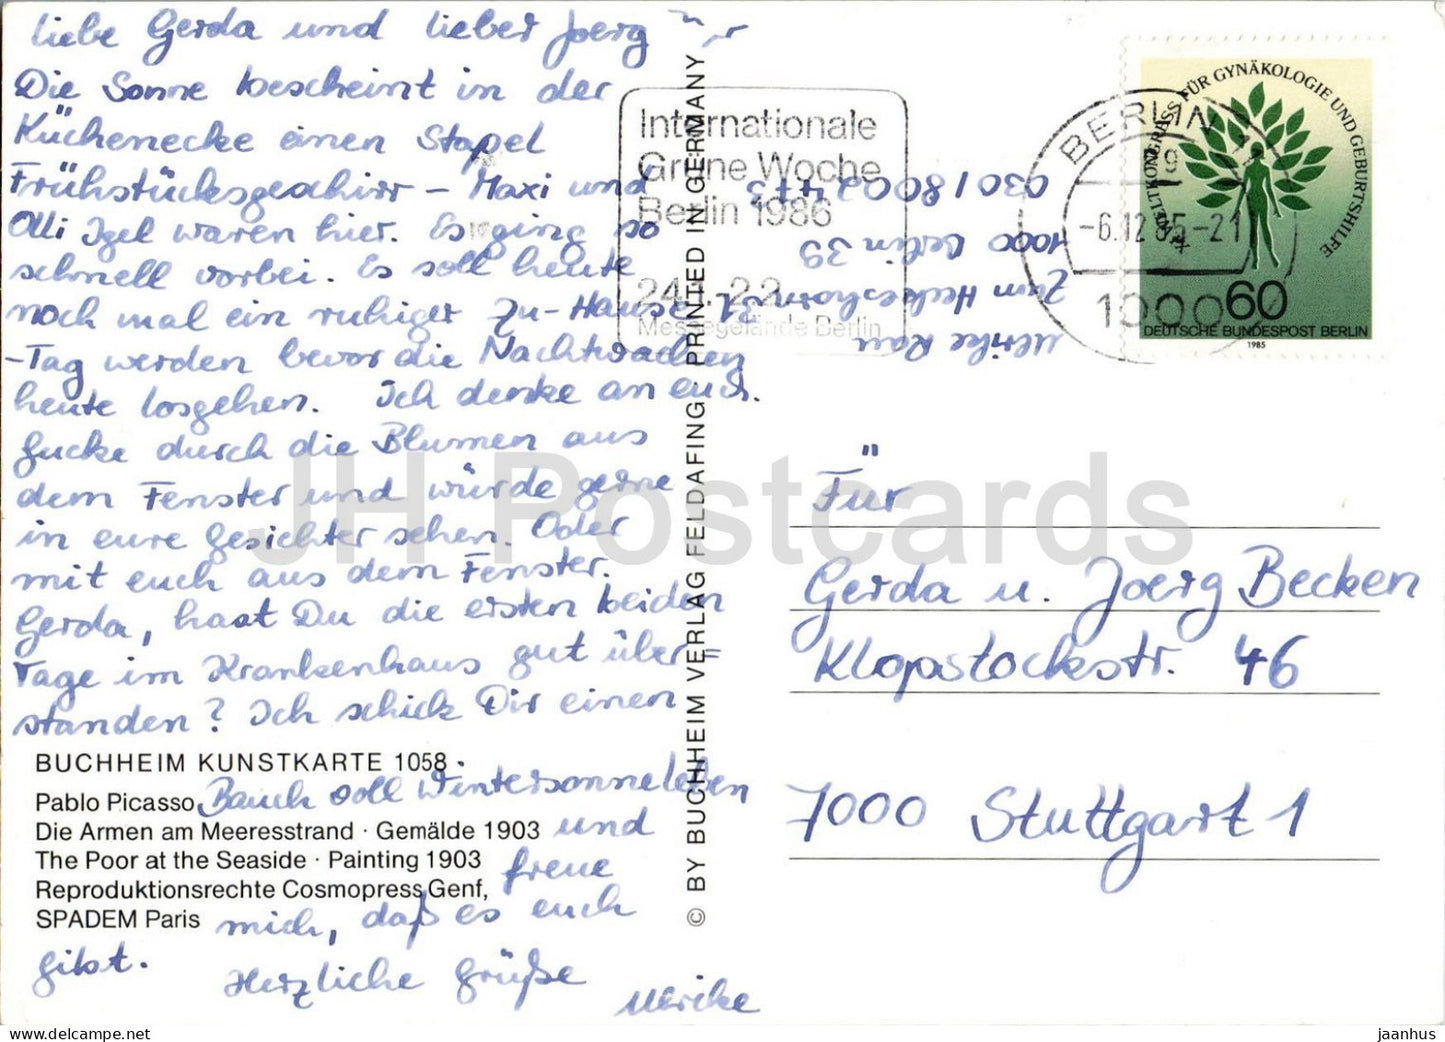 Liebe Gerda und lieber Joerg
Die Sonne bescheint in der
Küchenecke einen Stapel
Frühstücksgeschirr – Maxi und
Olli Igel waren hier. Es ging so
schnell vorbei. Es soll heute
noch mal ein ruhiger Zu-Hause
-Tag werden bevor die Nachtwachen
heute losgehen. Ich denke an euch.
Gucke durch die Blumen aus
dem Fenster und würde gerne
in eure Gesichter sehen. Oder
mit euch aus dem Fenster.
Gerda, hast Du die ersten beiden
Tage im Krankenhaus gut über=
standen? Ich schick Dir einen
Bauch voll Wintersonneleben
und
freue
mich, daß es euch
gibt.
Herzliche Grüße
Ulrike
BUCHHEIM KUNSTKARTE 1058
Pablo Picasso
Die Armen am Meeresstrand · Gemälde 1903
The Poor at the Seaside · Painting 1903
Reproduktionsrechte Cosmopress Genf,
SPADEM Paris
© BY BUCHHEIM VERLAG FELDAFING · PRINTED IN GERMANY
Internationale
Grüne Woche
Berlin 1986
24.1.-2.2.
Messegelände Berlin
Ulrike Rau
Zum Heckeshorn 31
1000 Berlin 39
030/8003473
BERLIN
-6.12.85-21
1000
WELTKONGRESS FÜR GYNÄKOLOGIE UND GEBURTSHILFE
60
DEUTSCHE BUNDESPOST BERLIN
1985
Für
Gerda u. Joerg Becken
Klopstockstr. 46
7000 Stuttgart 1
JH Postcards
www.delcampe.net
jaanhus